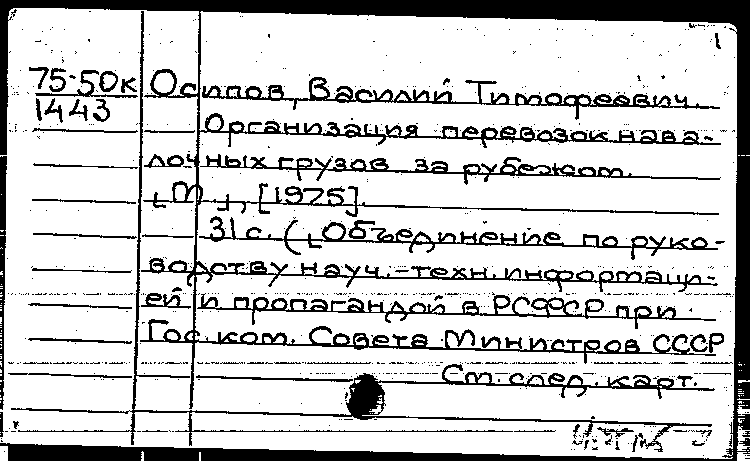 1
75-50к Осипов, Василий Тимофеевич.
1443
Организация перевозок нава-
лочных грузов за рубежом.
⌞М⌟, [1975].
31 с. (⌞Объединение по руко-
водству науч.-техн. информаци-
ей и пропагандой в РСФСР при
Гос. ком. Совета Министров СССР
См. след. карт.